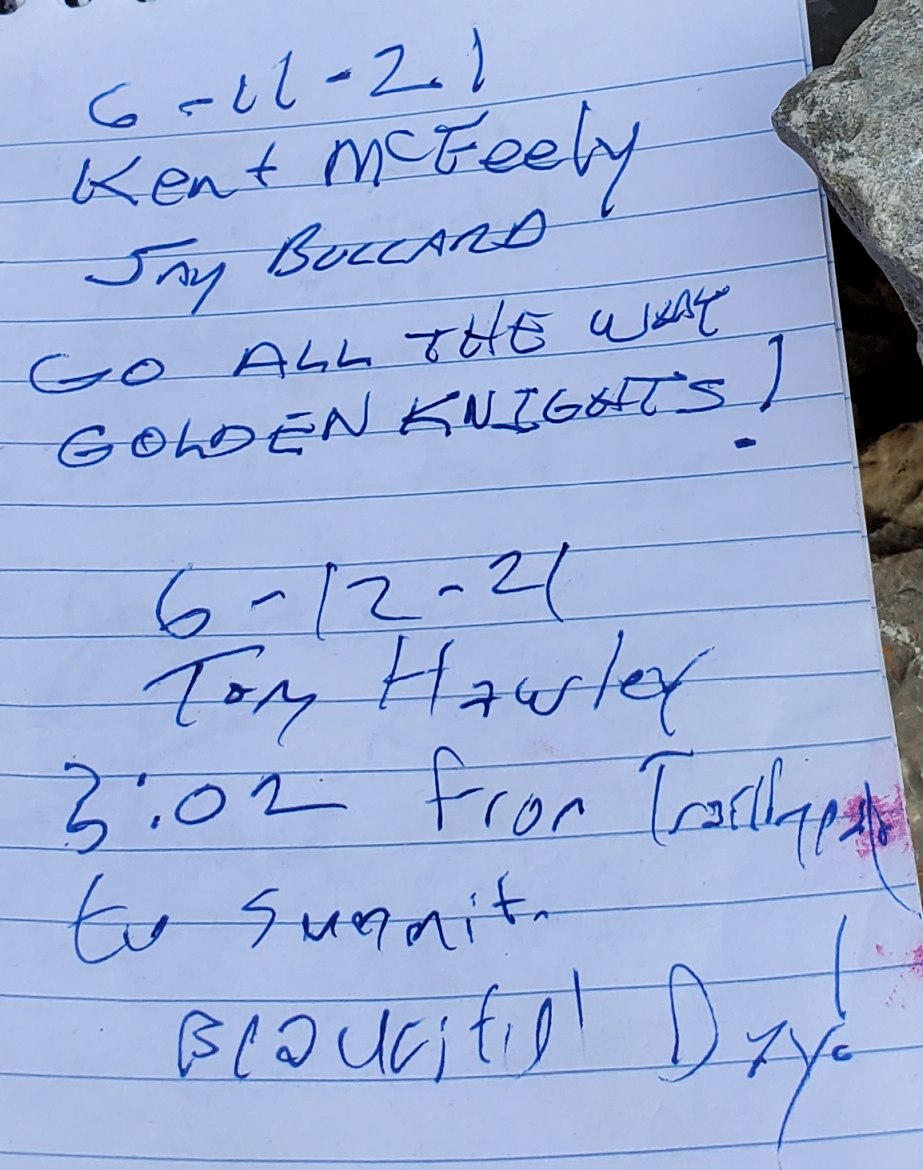 6-11-21
Kent McFeely
Jay BULLARD
GO ALL THE WAY
GOLDEN KNIGHTS!
6-12-21
Tom Hawley
3:02 from Trailhead
to summit.
Beautiful Day!